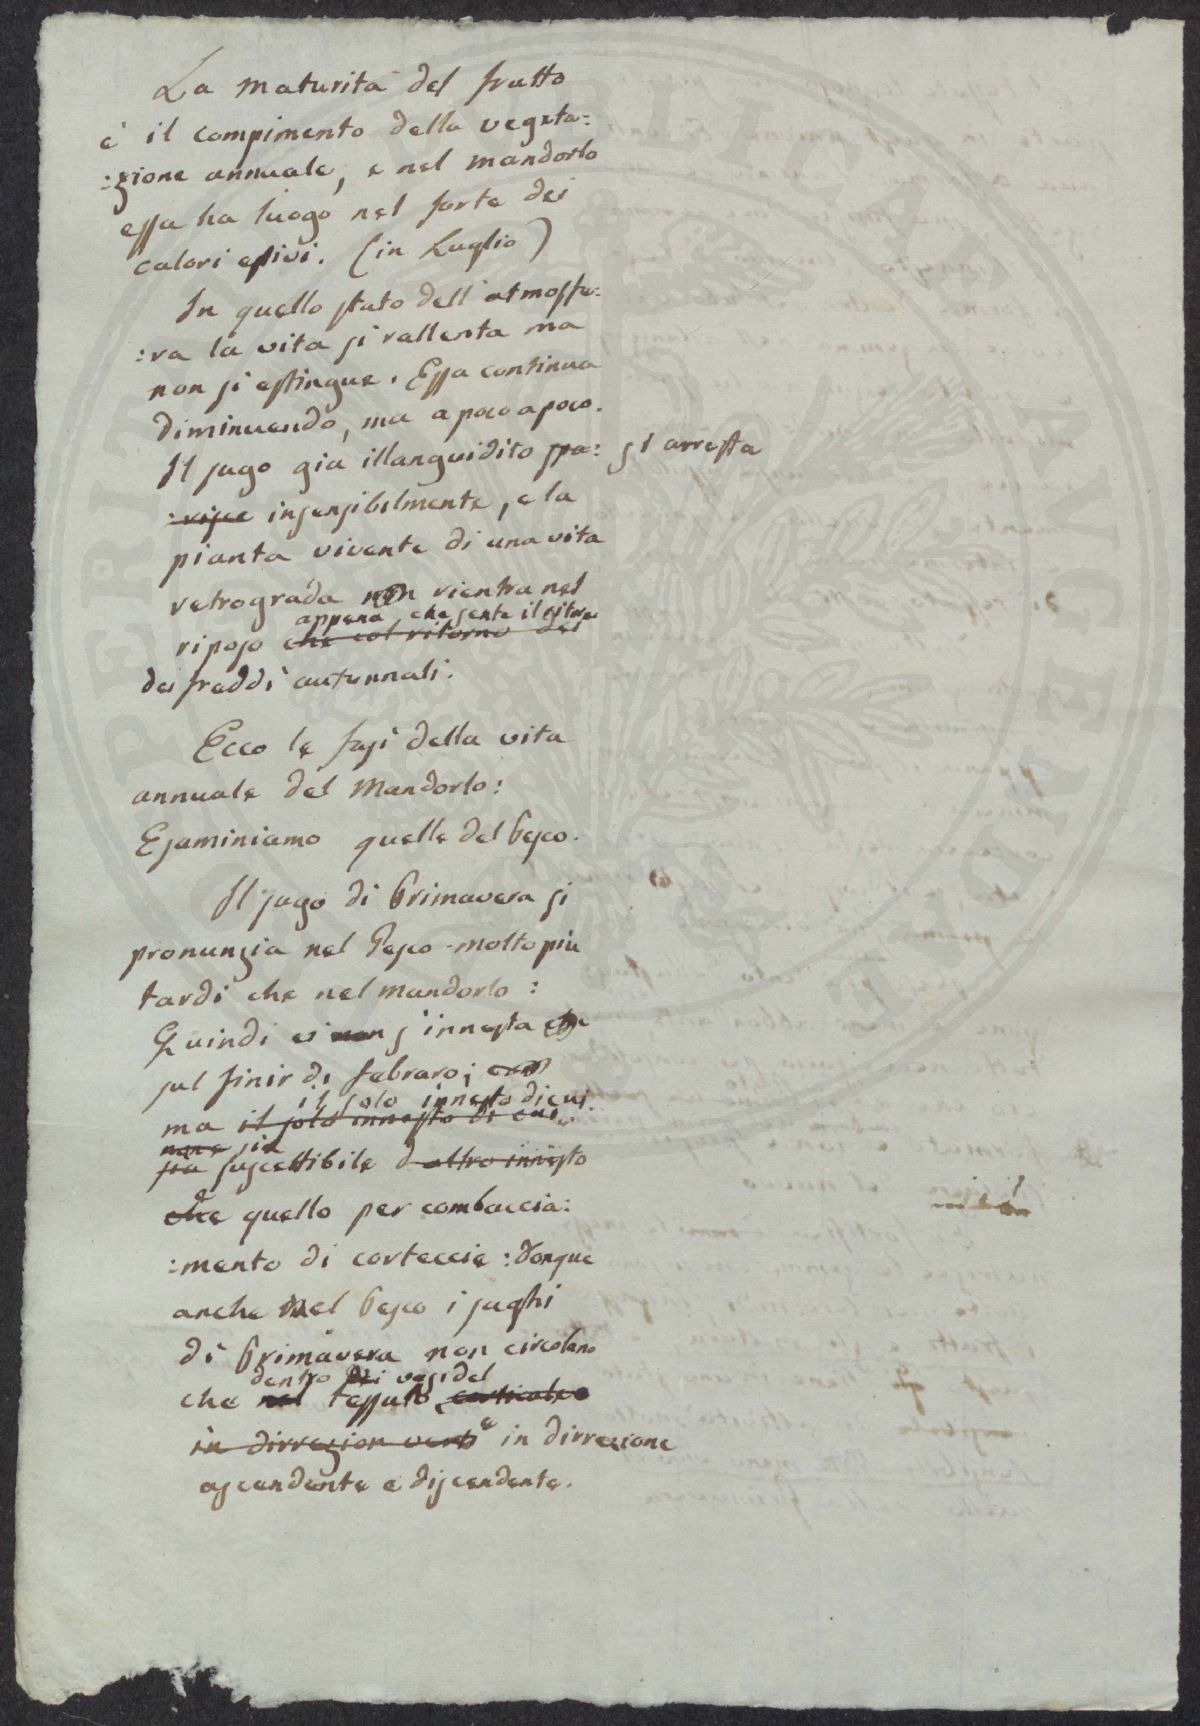 La maturita del frutto
è il compimento della vegeta:
:zione annuale, e nel mandorlo
essa ha luogo nel forte dei
calori estivi. (in Luglio)
In quello stato dell'atmosfe:
:ra la vita si rallenta ma
non si estingue. Essa continua
diminuendo, ma a poco a poco.
Il sugo gia illanguidito spa: si arresta
:risce insensibilmente, e la
pianta vivente di una vita
retrograda non rientra nel
appena che sente il ritorno
riposo che col ritorno dei
dei freddi autunnali.
Ecco le fasi della vita
annuale del Mandorlo:
Esaminiamo quelle del Pesco.
Il sugo di Primavera si
pronunzia nel Pesco molto più
tardi che nel mandorlo:
Quindi ei non s'innesta che
sul finir di febraro;
il solo innesto di cui
ma il solo innesto di cui
sia
sia suscettibile d altro innesto
è
che quello per combaccia:
:mento di corteccie: donque
anche nel Pesco i sughi
di Primavera non circolano
dentro dei vasi del
che nel tessuto corticale
in dirrezion vert e in dirrezione
ascendente e discendente.